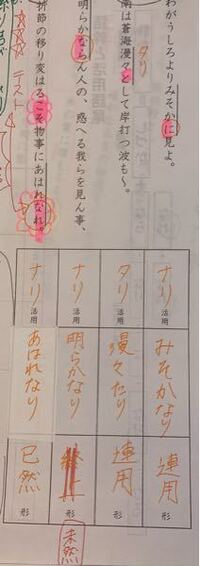 わがうしろよりみそかに見よ。
南は蒼海漫々として岸打つ波も～。
タリ
明らかならん人の、惑へる我らを見ん事、
折節の移り変はるこそ物事にあはれなれ。
テスト
ナリ活用 みそかなり 連用形
タリ活用 漫々たり 連用形
ナリ活用 明らかなり 終止形
未然
ナリ活用 あはれなり 已然形